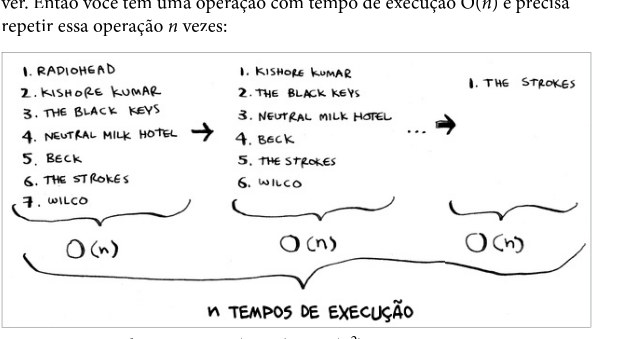 ver. Então você tem uma operação com tempo de execução O(n) e precisa
repetir essa operação n vezes:
1. RADIOHEAD
2. KISHORE KUMAR
3. THE BLACK KEYS
4. NEUTRAL MILK HOTEL
5. BECK
6. THE STROKES
7. WILCO
O(n)
1. KISHORE KUMAR
2. THE BLACK KEYS
3. NEUTRAL MILK HOTEL
4. BECK
5. THE STROKES
6. WILCO
O(n)
...
1. THE STROKES
O(n)
n TEMPOS DE EXECUÇÃO